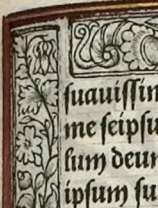 ſuauiſſim
me ſeipſu
lum deum
ipſum ſu